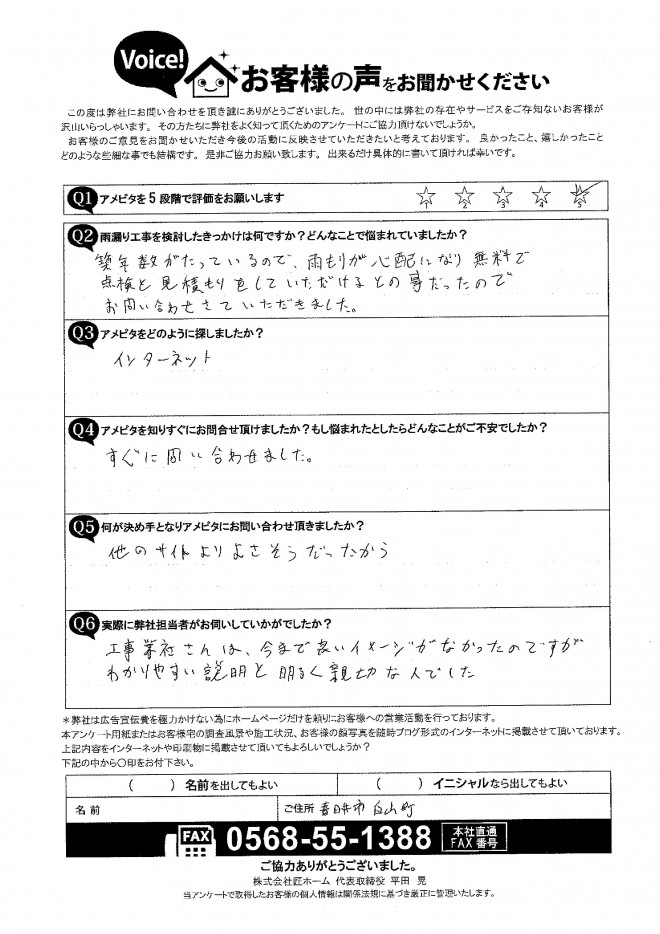 Voice! お客様の声をお聞かせください
この度は弊社にお問い合わせを頂き誠にありがとうございました。世の中には弊社の存在やサービスをご存知ないお客様が
沢山いらっしゃいます。その方たちに弊社をよく知って頂くためのアンケートにご協力頂けないでしょうか。
お客様のご意見をお聞かせいただき今後の活動に反映させていただきたいと考えております。良かったこと、嬉しかったこと
どのような些細な事でも結構です。是非ご協力お願い致します。出来るだけ具体的に書いて頂ければ幸いです。
Q1 アメピタを5段階で評価をお願いします ☆1 ☆2 ☆3 ☆4 ☆5
Q2 雨漏り工事を検討したきっかけは何ですか?どんなことで悩まれていましたか?
築年数がたっているので、雨もりが心配になり無料で
点検と見積もりをしていただけるとの事だったので
お問い合わせさていただきました。
Q3 アメピタをどのように探しましたか?
インターネット
Q4 アメピタを知りすぐにお問合せ頂けましたか?もし悩まれたとしたらどんなことがご不安でしたか?
すぐに問い合わせました。
Q5 何が決め手となりアメピタにお問い合わせ頂きましたか?
他のサイトよりよさそうだったから
Q6 実際に弊社担当者がお伺いしていかがでしたか?
工事業社さんは、今まで良いイメージがなかったのですが
わかりやすい説明と明るく親切な人でした
*弊社は広告宣伝費を極力かけない為にホームページだけを頼りにお客様への営業活動を行っております。
本アンケート用紙またはお客様宅の調査風景や施工状況、お客様の顔写真を随時ブログ形式のインターネットに掲載させて頂いております。
上記内容をインターネットや印刷物に掲載させて頂いてもよろしいでしょうか?
下記の中から○印をお付下さい。
( )名前を出してもよい ( )イニシャルなら出してもよい
名前 ご住所 春日井市白山町
FAX 0568-55-1388 本社直通FAX番号
ご協力ありがとうございました。
株式会社匠ホーム 代表取締役 平田 晃
当アンケートで取得したお客様の個人情報は関係法規に基づき厳正に管理いたします。